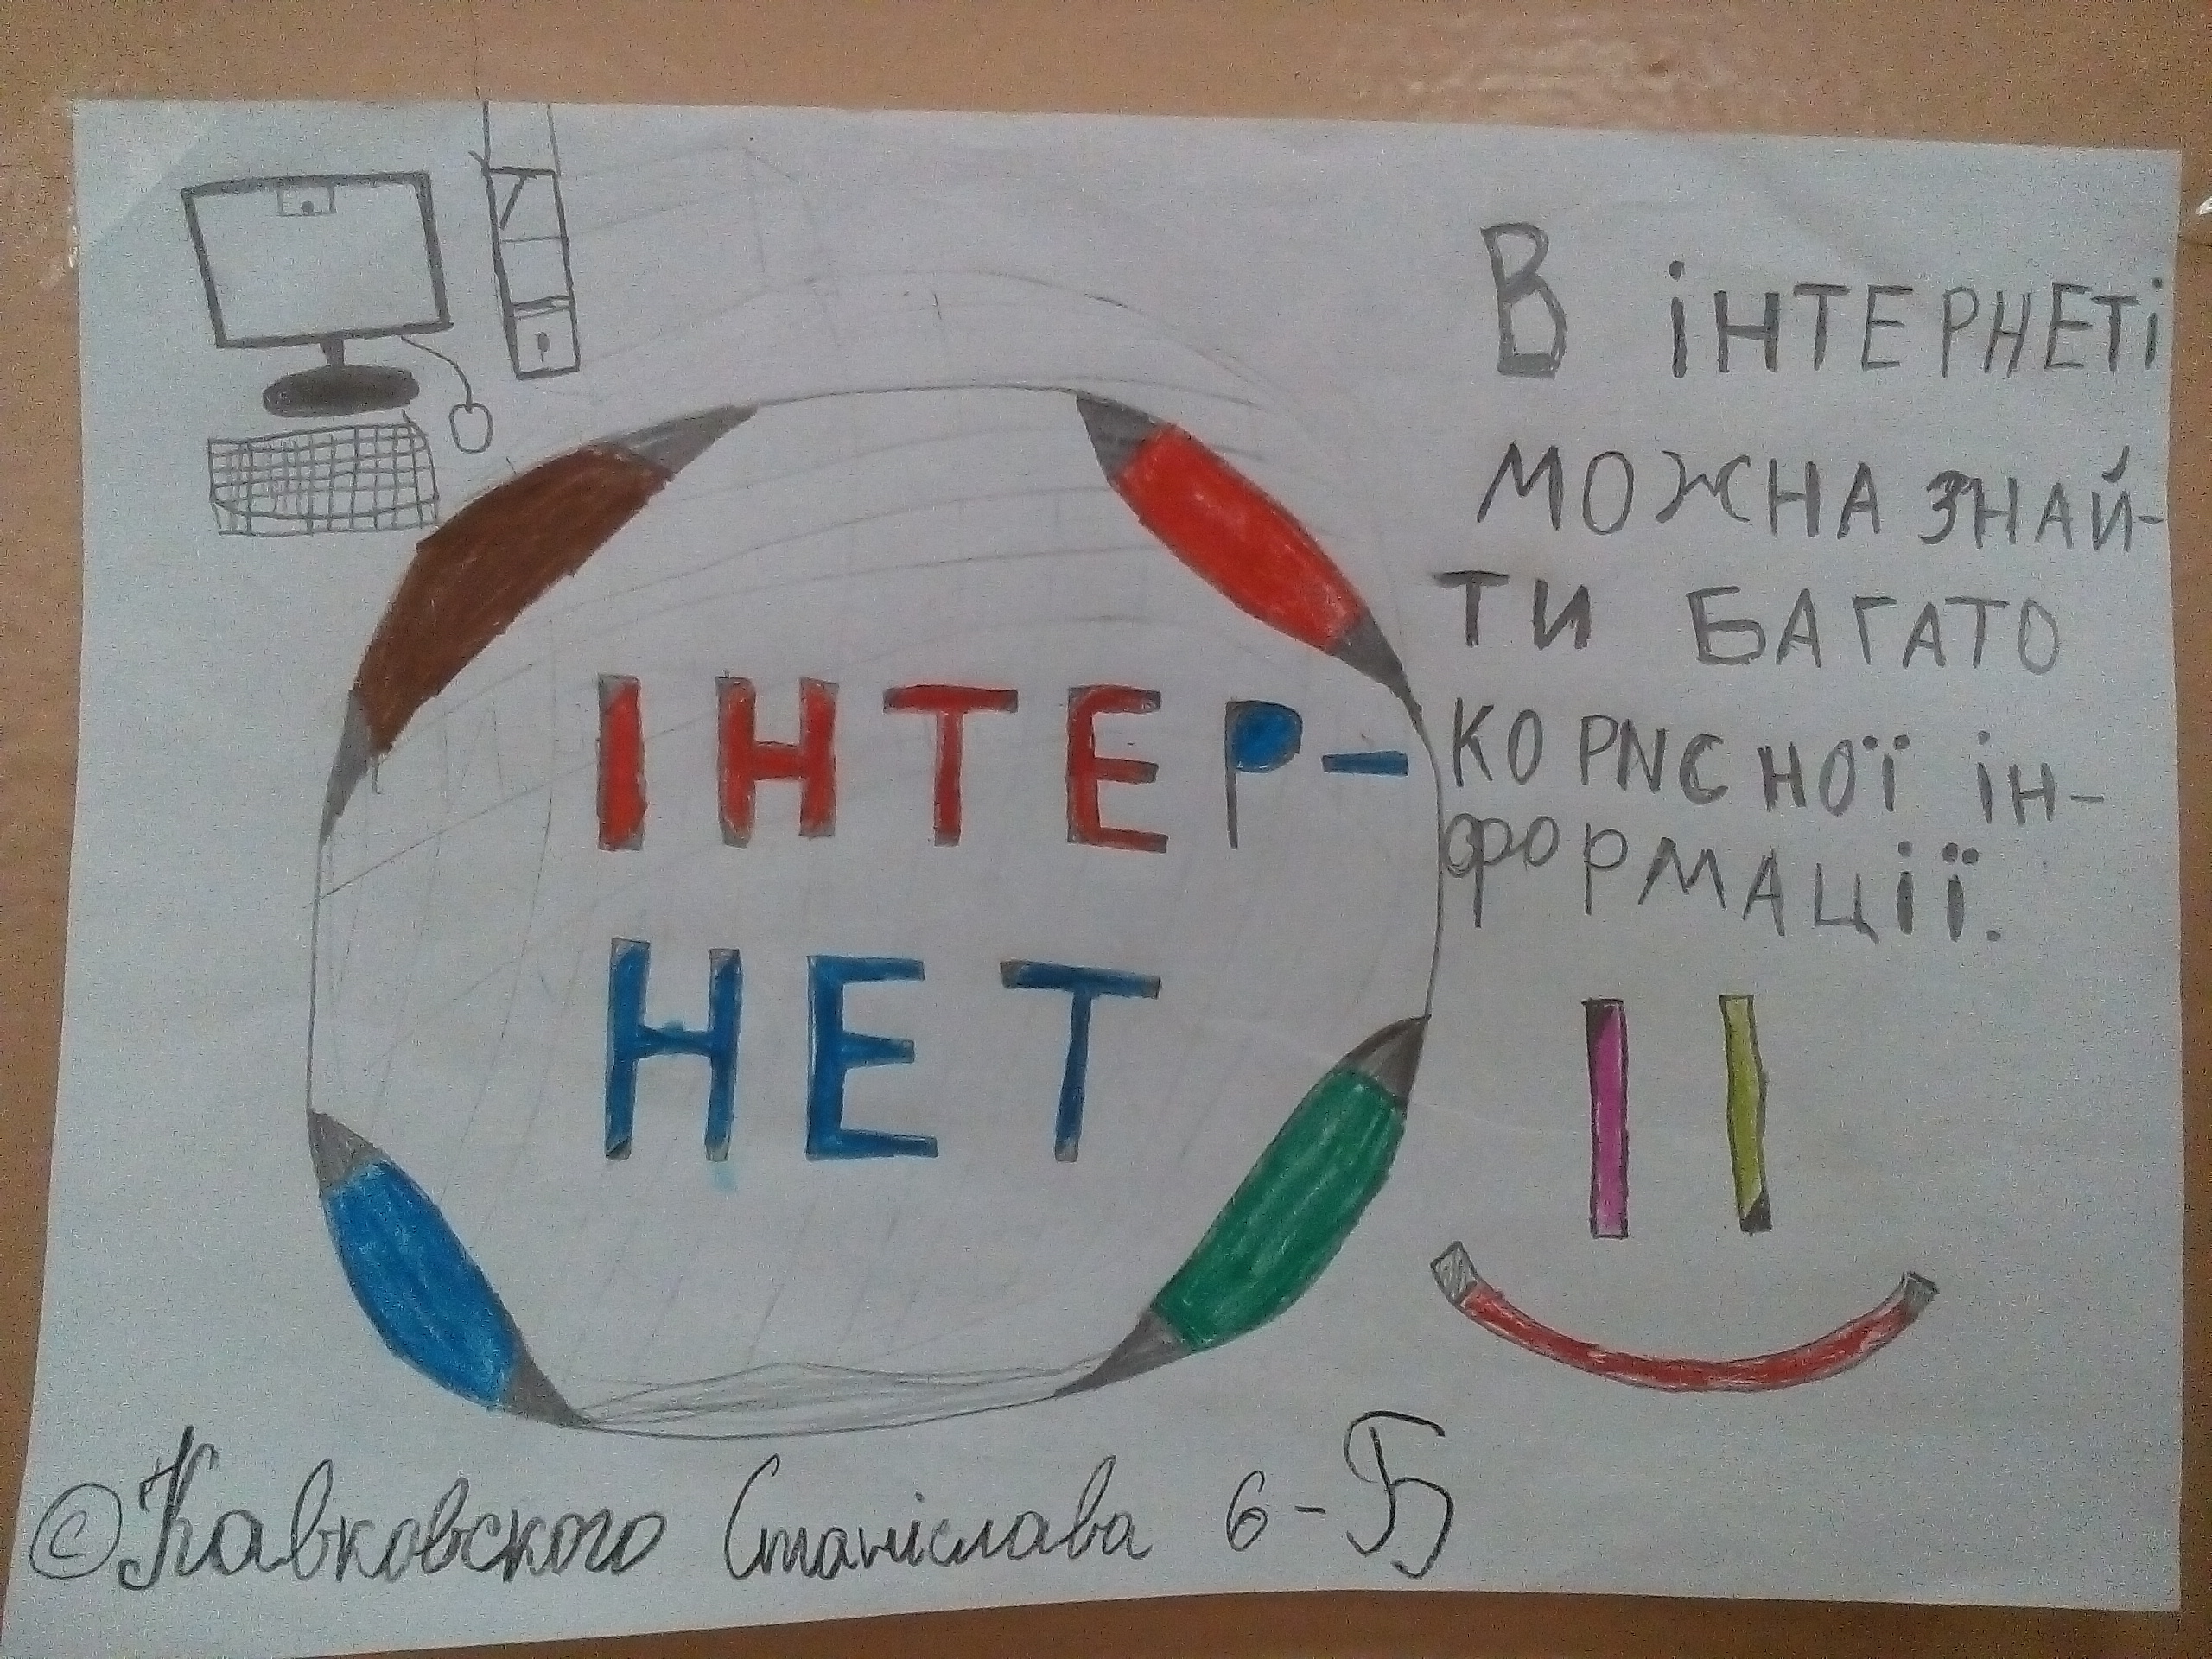 ІНТЕР-
НЕТ
В ІНТЕРНЕТІ
МОЖНА ЗНАЙ-
ТИ БАГАТО
КОРИСНОЇ ІН-
ФОРМАЦІЇ.
© Кавковского Станіслава 6-Б